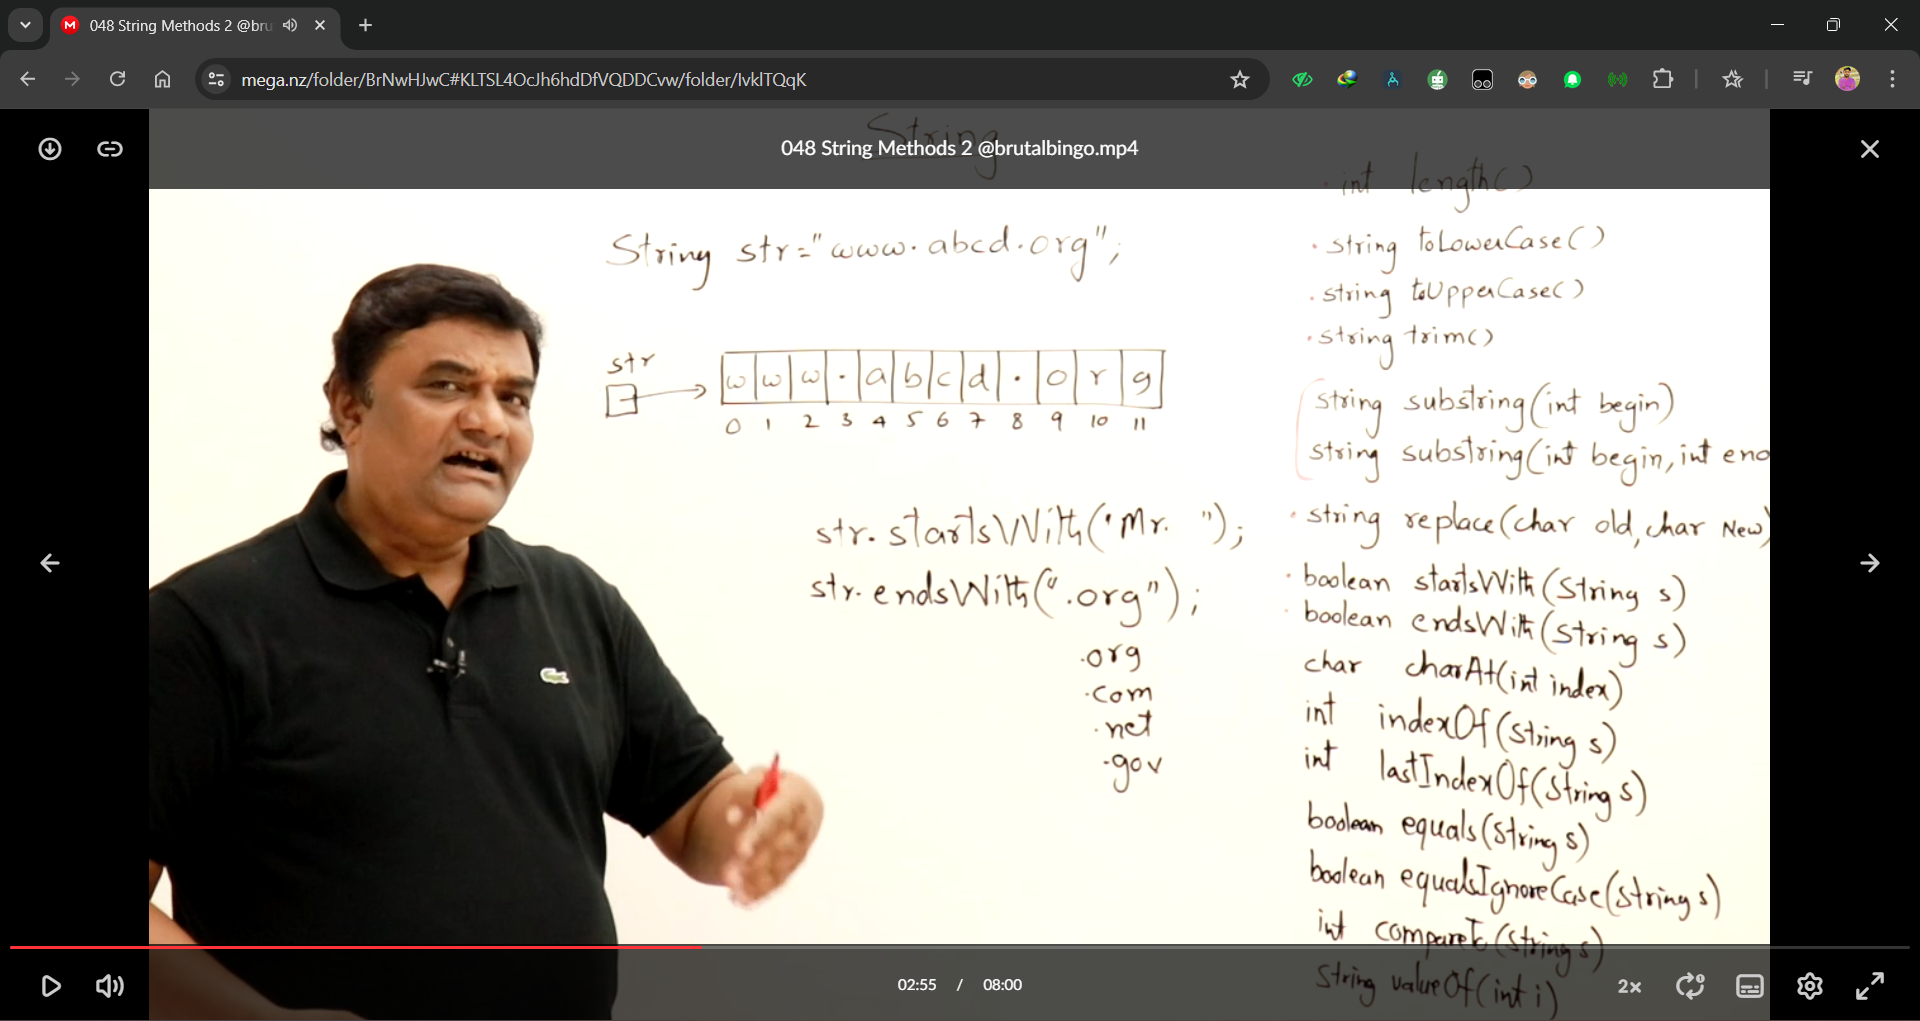 048 String Methods 2 @bru
mega.nz/folder/BrNwHJwC#KLTSL4OcJh6hdDfVQDDCvw/folder/IvklTQqK
String
048 String Methods 2 @brutalbingo.mp4
String str="www.abcd.org";
str
w w w . a b c d . o r g
0 1 2 3 4 5 6 7 8 9 10 11
str.startsWith("Mr. ");
str.endsWith(".org");
.org
.com
.net
.gov
· int length()
· string toLowerCase()
· string toUpperCase()
· string trim()
string substring(int begin)
string substring(int begin, int
· string replace(char old, char New)
· boolean startsWith(String s)
· boolean endsWith(String s)
char charAt(int index)
int indexOf(String s)
int lastIndexOf(String s)
boolean equals(String s)
boolean equalsIgnoreCase(String s)
int compareTo(String s)
String valueOf(int i)
02:55 / 08:00
2x